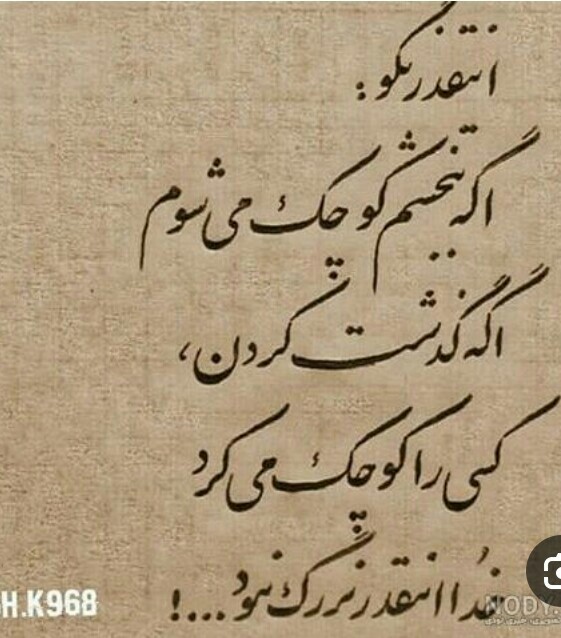 انقدر نگو :
اگه ببخشم کوچک می شوم
اگه گذشت کردن،
کسی را کوچک می کرد
خدا انقدر بزرگ نبود...!
SH.K968
NODY.